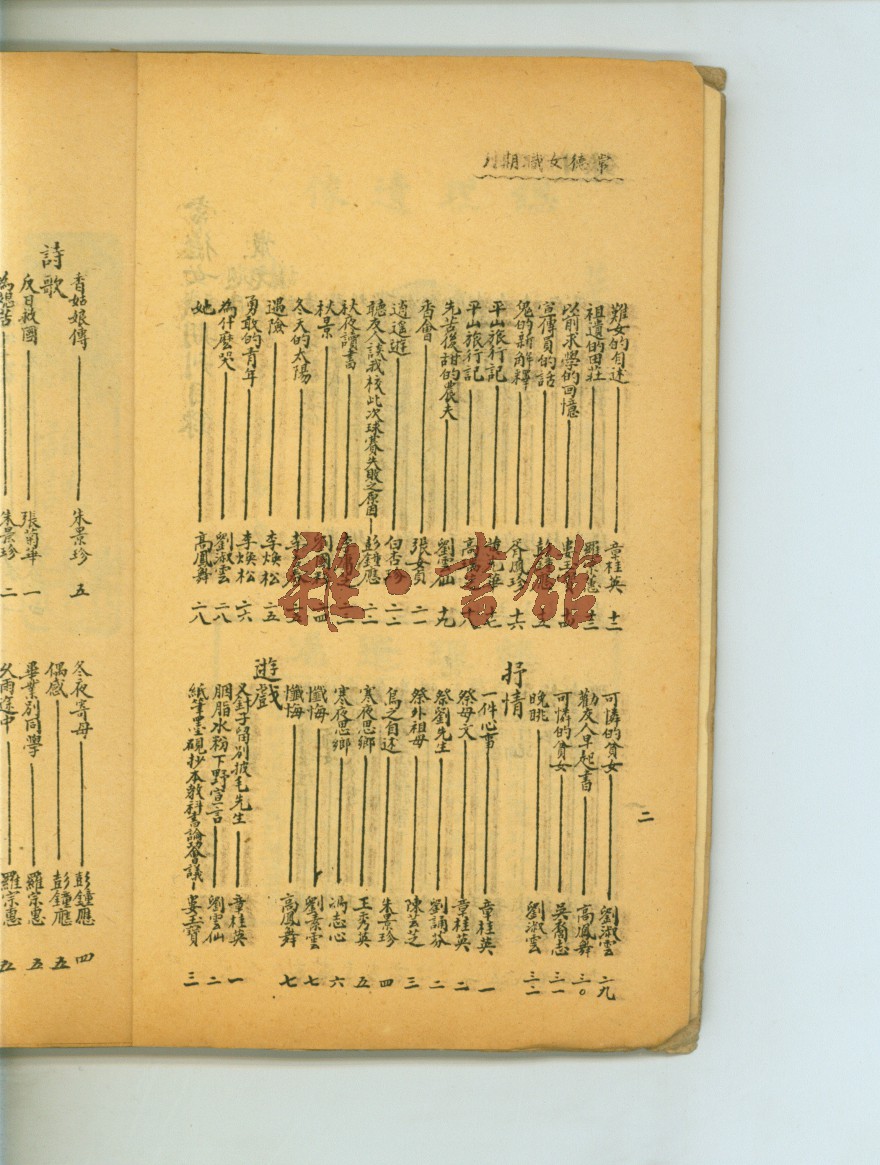 常德女職期刊
二
難女的自述 章桂英 十二
祖遺的田莊 十三
以前求學的回憶 十四
宣傳員的話 十五
鬼的新解釋 鳳珍 十六
平山旅行記 十七
平山旅行記 高 十八
先苦後甜的農夫 劉雲仙 十九
香會 張女貞 二一
逍遙遊 白杏珍 二二
聽友人談我校此次球賽失敗之原因 彭鐘應 二二
秋夜讀書
秋景 二四
冬天的太陽 李 二五
遇險 李煥松 二五
勇敢的青年 李煥松 二六
為什麼哭 劉淑雲 二八
她 高鳳舞 二八
可憐的貧女 劉淑雲 二九
勸友人早起書 高鳳舞 三〇
可憐的貧女 吳裔志 三一
晚眺 劉淑雲 三二
抒情
一件心事 章桂英 一
祭母文 章桂英 二
祭劉先生 劉誦芬 二
祭外祖母 陳芸芝 三
鳥之自述 朱景珍 四
寒夜思鄉 王秀英 五
寒夜思鄉 馮志心 六
懺悔 劉素雲 七
懺悔 高鳳舞 七
遊戲
叉針子留別披毛先生 章桂英 一
胭脂水粉下野宣言 劉雲仙 二
紙筆墨硯抄本教科書論發會議 婁玉寶 三
香姑娘傳 朱景珍 五
詩歌
反日救國 張菊華 一
朱景珍 二
冬夜寄母 彭鐘應 四
偶感 彭鐘應 五
畢業別同學 羅宗惠 五
久雨途中 羅宗惠 五
雜·書館